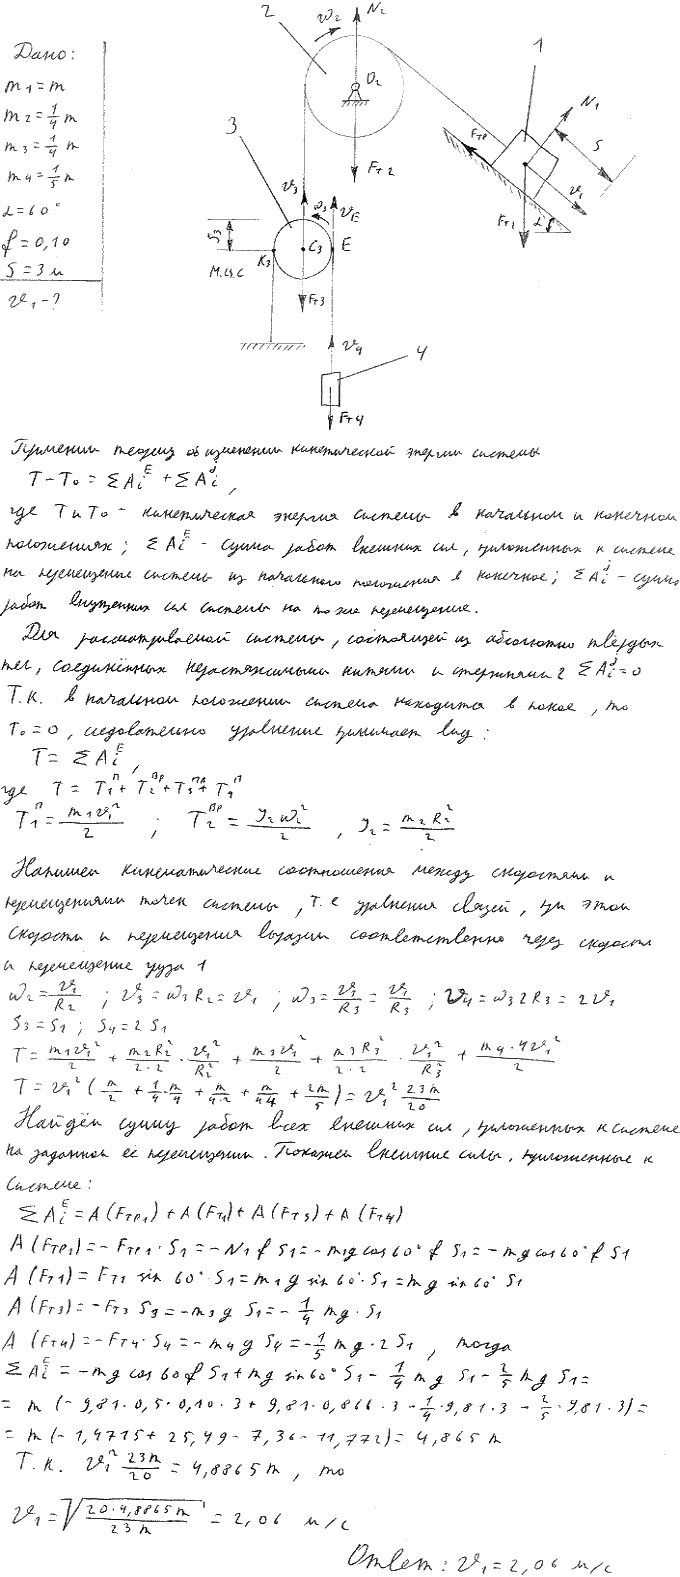 Дано:
m₁ = m
m₂ = 1/4 m
m₃ = 1/4 m
m₄ = 1/5 m
α = 60°
f = 0,10
S = 3 м
v₁ - ?
2
ω₂
N₂
O₂
Fт2
1
N₁
Fтр
S
v₁
Fт1
α
3
v₃
ω₃
vE
S₃
K₃
C₃
E
М.Ц.С
Fт3
v₄
4
Fт4
Применим теорему об изменении кинетической энергии системы
T - T₀ = ΣAᵢᴱ + ΣAᵢᴶ,
где T и T₀ - кинетическая энергия системы в начальном и конечном
положениях; ΣAᵢᴱ - сумма работ внешних сил, приложенных к системе
на перемещение системы из начального положения в конечное; ΣAᵢᴶ - сумма
работ внутренних сил системы на то же перемещение.
Для рассматриваемой системы, состоящей из абсолютно твердых
тел, соединённых нерастяжимыми нитями и стержнями ΣAᵢᴶ = 0
Т.К. в начальном положении система находится в покое, то
T₀ = 0, следовательно уравнение принимает вид:
T = ΣAᵢᴱ,
где T = T₁ᴾ + T₂ᴮᴾ + T₃ᴾᴾ + T₄ᴾ
T₁ᴾ = m₁v₁²/2 ; T₂ᴮᴾ = J₂ω₂²/2 , J₂ = m₂R₂²/2
Напишем кинематические соотношения между скоростями и
перемещениями точек системы, т.е уравнения связей, при этом
скорости и перемещения выразим соответственно через скорость
и перемещение груза 1
ω₂ = v₁/R₂ ; v₃ = ω₃R₂ = v₁ ; ω₃ = v₃/R₃ = v₁/R₃ ; v₄ = ω₃2R₃ = 2v₁
S₃ = S₁ ; S₄ = 2S₁
T = m₁v₁²/2 + m₂R₂²/2·2 · v₁²/R₂² + m₃v₁²/2 + m₃R₃²/2·2 · v₁²/R₃² + m₄·4v₁²/2
T = v₁² (m/2 + 1/4·m/4 + m/4·2 + m/44 + 2m/5) = v₁² 23m/20
Найдём сумму работ всех внешних сил, приложенных к системе
на заданном её перемещении. Покажем внешние силы, приложенные к
системе:
ΣAᵢᴱ = A(Fтр₁) + A(Fт1) + A(Fт3) + A(Fт4)
A(Fтр₁) = -Fтр₁·S₁ = -N₁fS₁ = -m₁gcos60°fS₁ = -mgcos60°fS₁
A(Fт1) = Fт1 sin60°·S₁ = m₁g sin60°·S₁ = mg sin60°S₁
A(Fт3) = -Fт3 S₃ = -m₃g S₁ = -1/4 mg·S₁
A(Fт4) = -Fт4·S₄ = -m₄g S₄ = -1/5 mg·2S₁, тогда
ΣAᵢᴱ = -mg cos60fS₁ + mg sin60°S₁ - 1/4 mg S₁ - 2/5 mg S₁ =
= m(-9,81·0,5·0,10·3 + 9,81·0,866·3 - 1/4·9,81·3 - 2/5·9,81·3) =
= m(-1,4715 + 25,49 - 7,36 - 11,772) = 4,865 m
Т.К. v₁² 23m/20 = 4,8865 m, то
v₁ = √(20·4,8865m/23m) = 2,06 м/с
Ответ: v₁ = 2,06 м/с